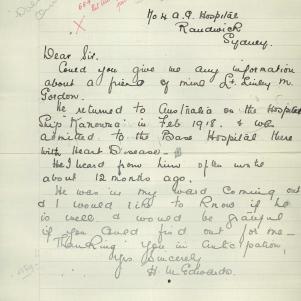 No 4 A.G. Hospital
Randwick
Sydney.
Dear Sir.
Could you give me any information
about a friend of mine Lt. Linley M.
Gordon.
He returned to Australia on the Hospital
Ship "Kanowna" in Feb 1918. & was
admitted to the Base Hospital there
with Heart Disease -
I heard from him often until
about 12 months ago.
He was in my ward coming out
& I would like to know if he
is well. I would be grateful
if you could find out for me -
Thanking you in anticipation,
Yrs. Sincerely
H. M. Edwards.